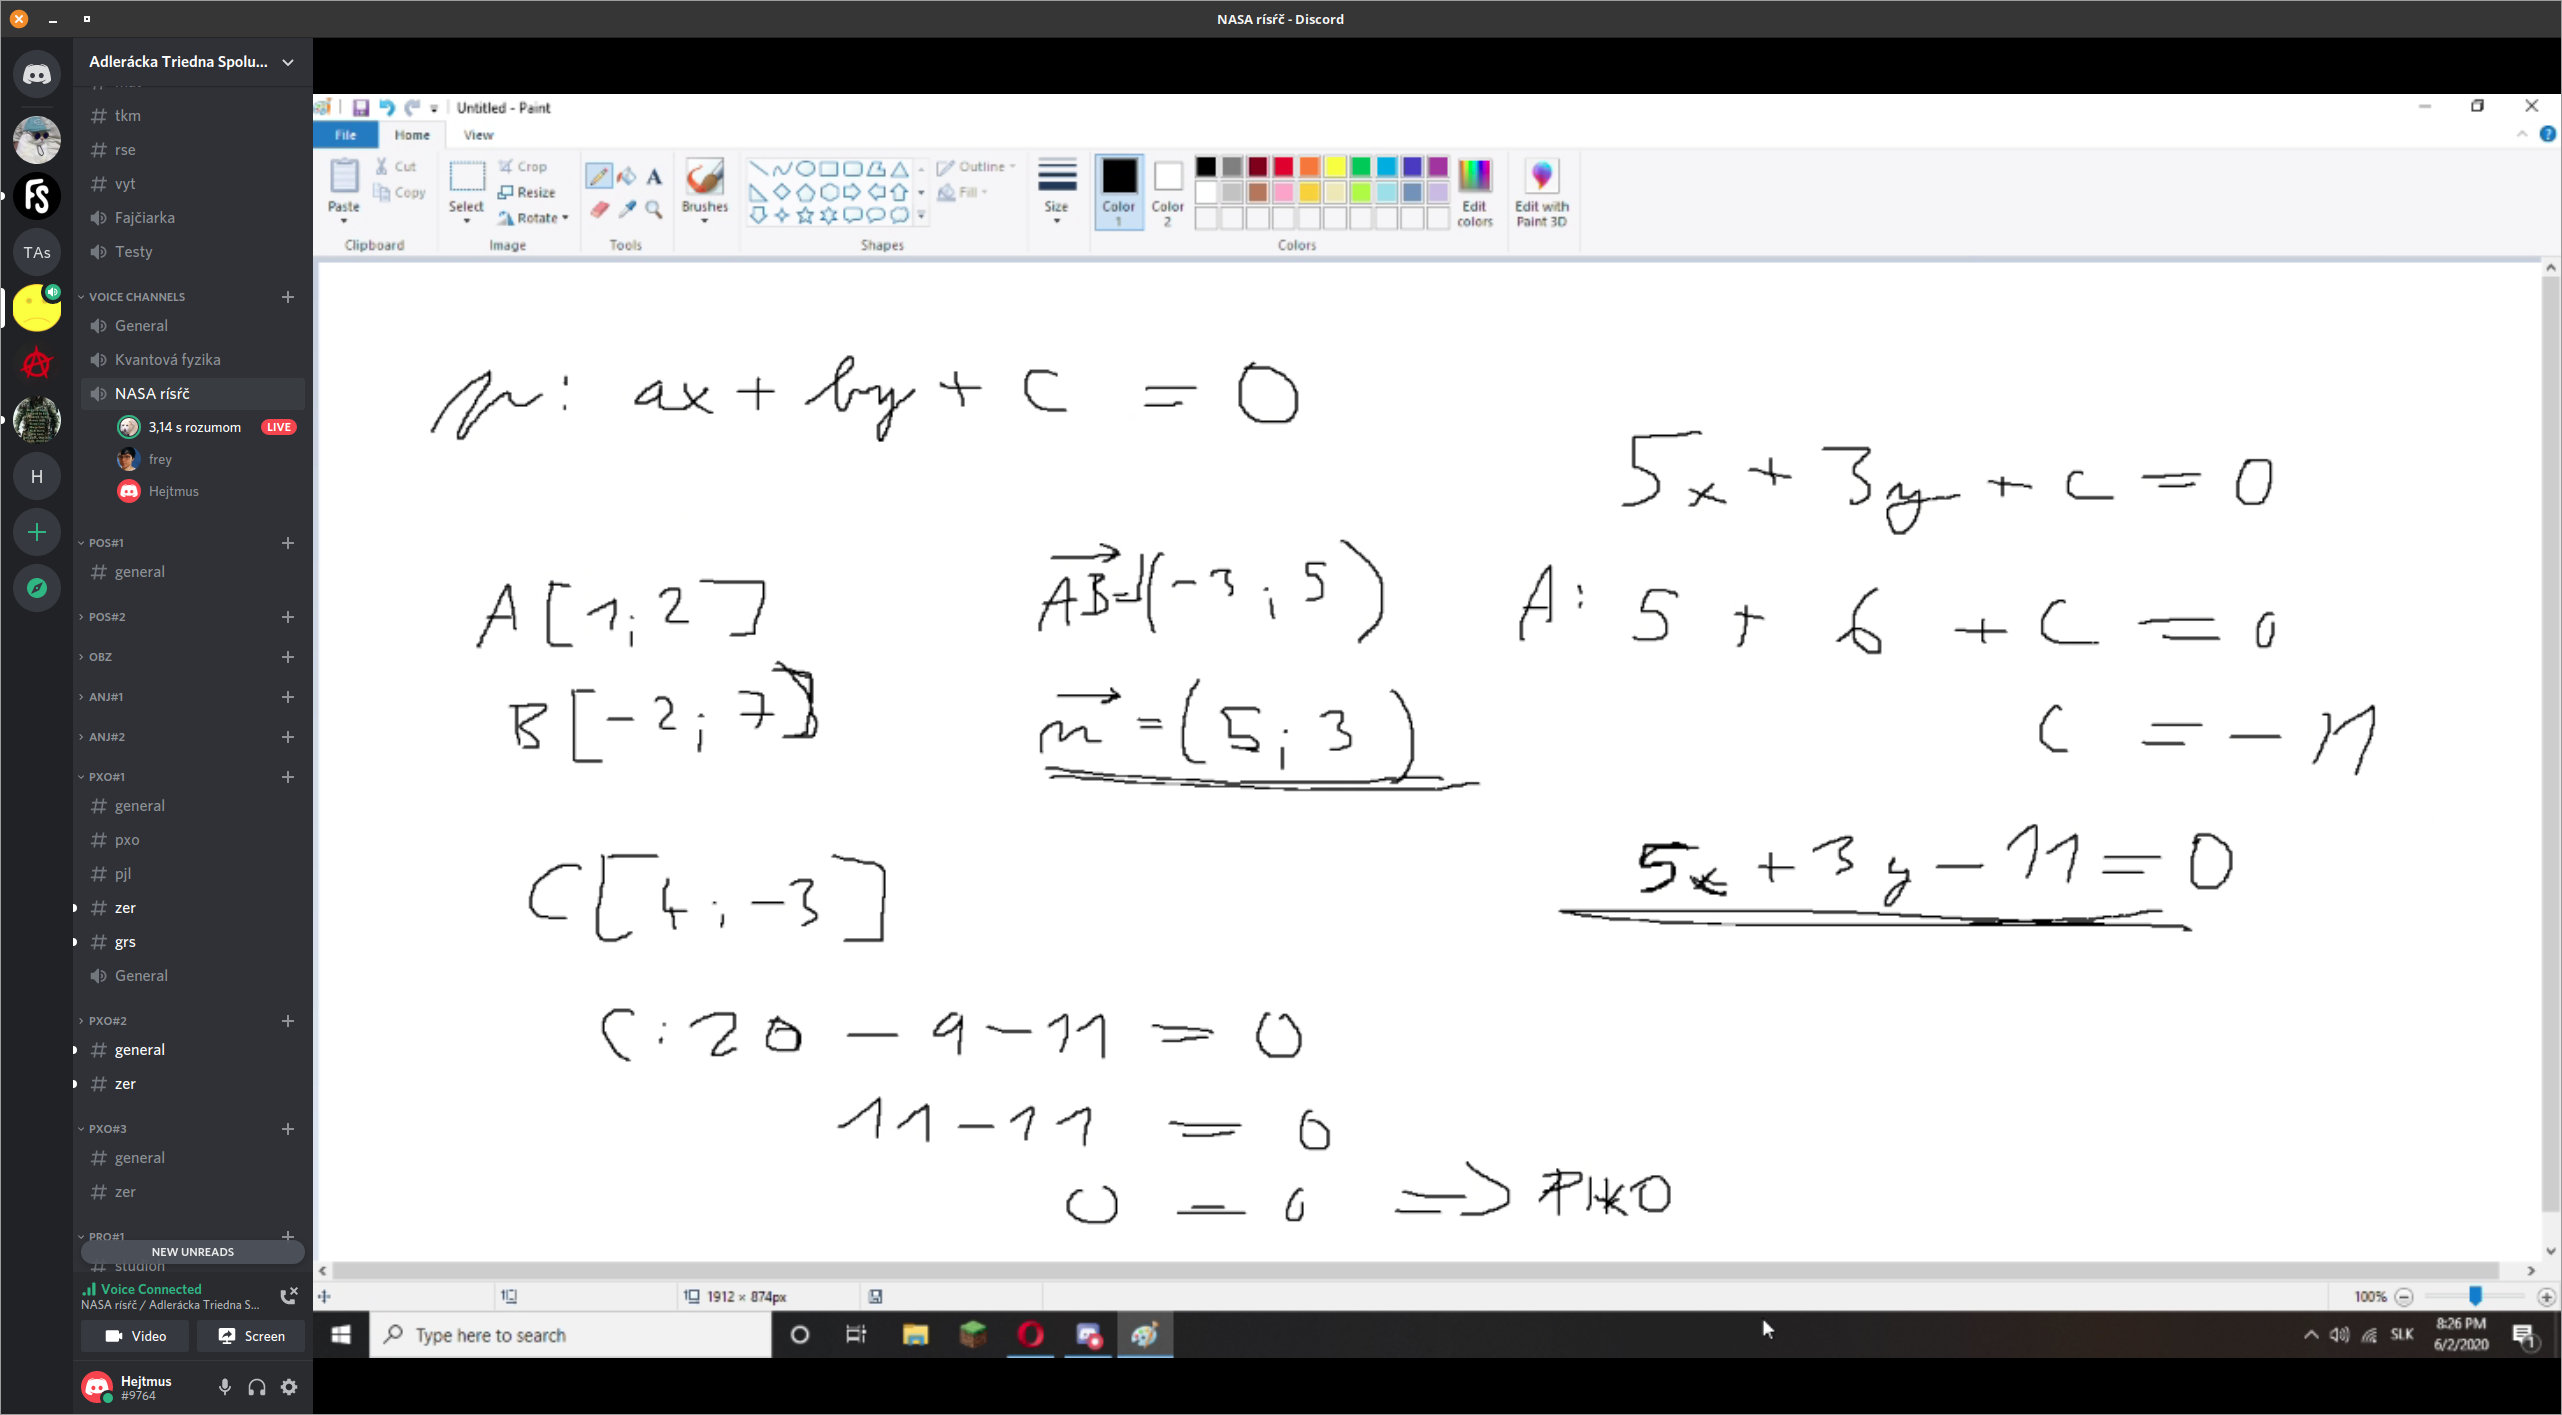 NASA rísŕč - Discord
Adlerácka Triedna Spolu...
tkm
rse
vyt
Fajčiarka
Testy
VOICE CHANNELS
General
Kvantová fyzika
NASA rísŕč
3,14 s rozumom LIVE
frey
Hejtmus
POS#1
general
POS#2
OBZ
ANJ#1
ANJ#2
PXO#1
general
pxo
pjl
zer
grs
General
PXO#2
general
zer
PXO#3
general
zer
PRO#1
NEW UNREADS
studion
Voice Connected
NASA rísŕč / Adlerácka Triedna S...
Video Screen
Hejtmus
#9764
FS
TAs
H
Untitled - Paint
File Home View
Paste Cut Copy
Clipboard
Select Crop Resize Rotate
Image
A
Tools
Brushes
Outline
Fill
Shapes
Size
Color 1
Color 2
Edit colors
Edit with Paint 3D
Colors
p: ax + by + c = 0
A [1; 2]
B [-2; 7]
AB=(-3; 5)
n = (5; 3)
5x + 3y + c = 0
A: 5 + 6 + C = 0
C = -11
5x + 3y - 11 = 0
C [4; -3]
C: 20 - 9 - 11 = 0
11 - 11 = 0
0 = 0 => PIKO
1912 × 874px
100%
Type here to search
SLK
8:26 PM
6/2/2020
1